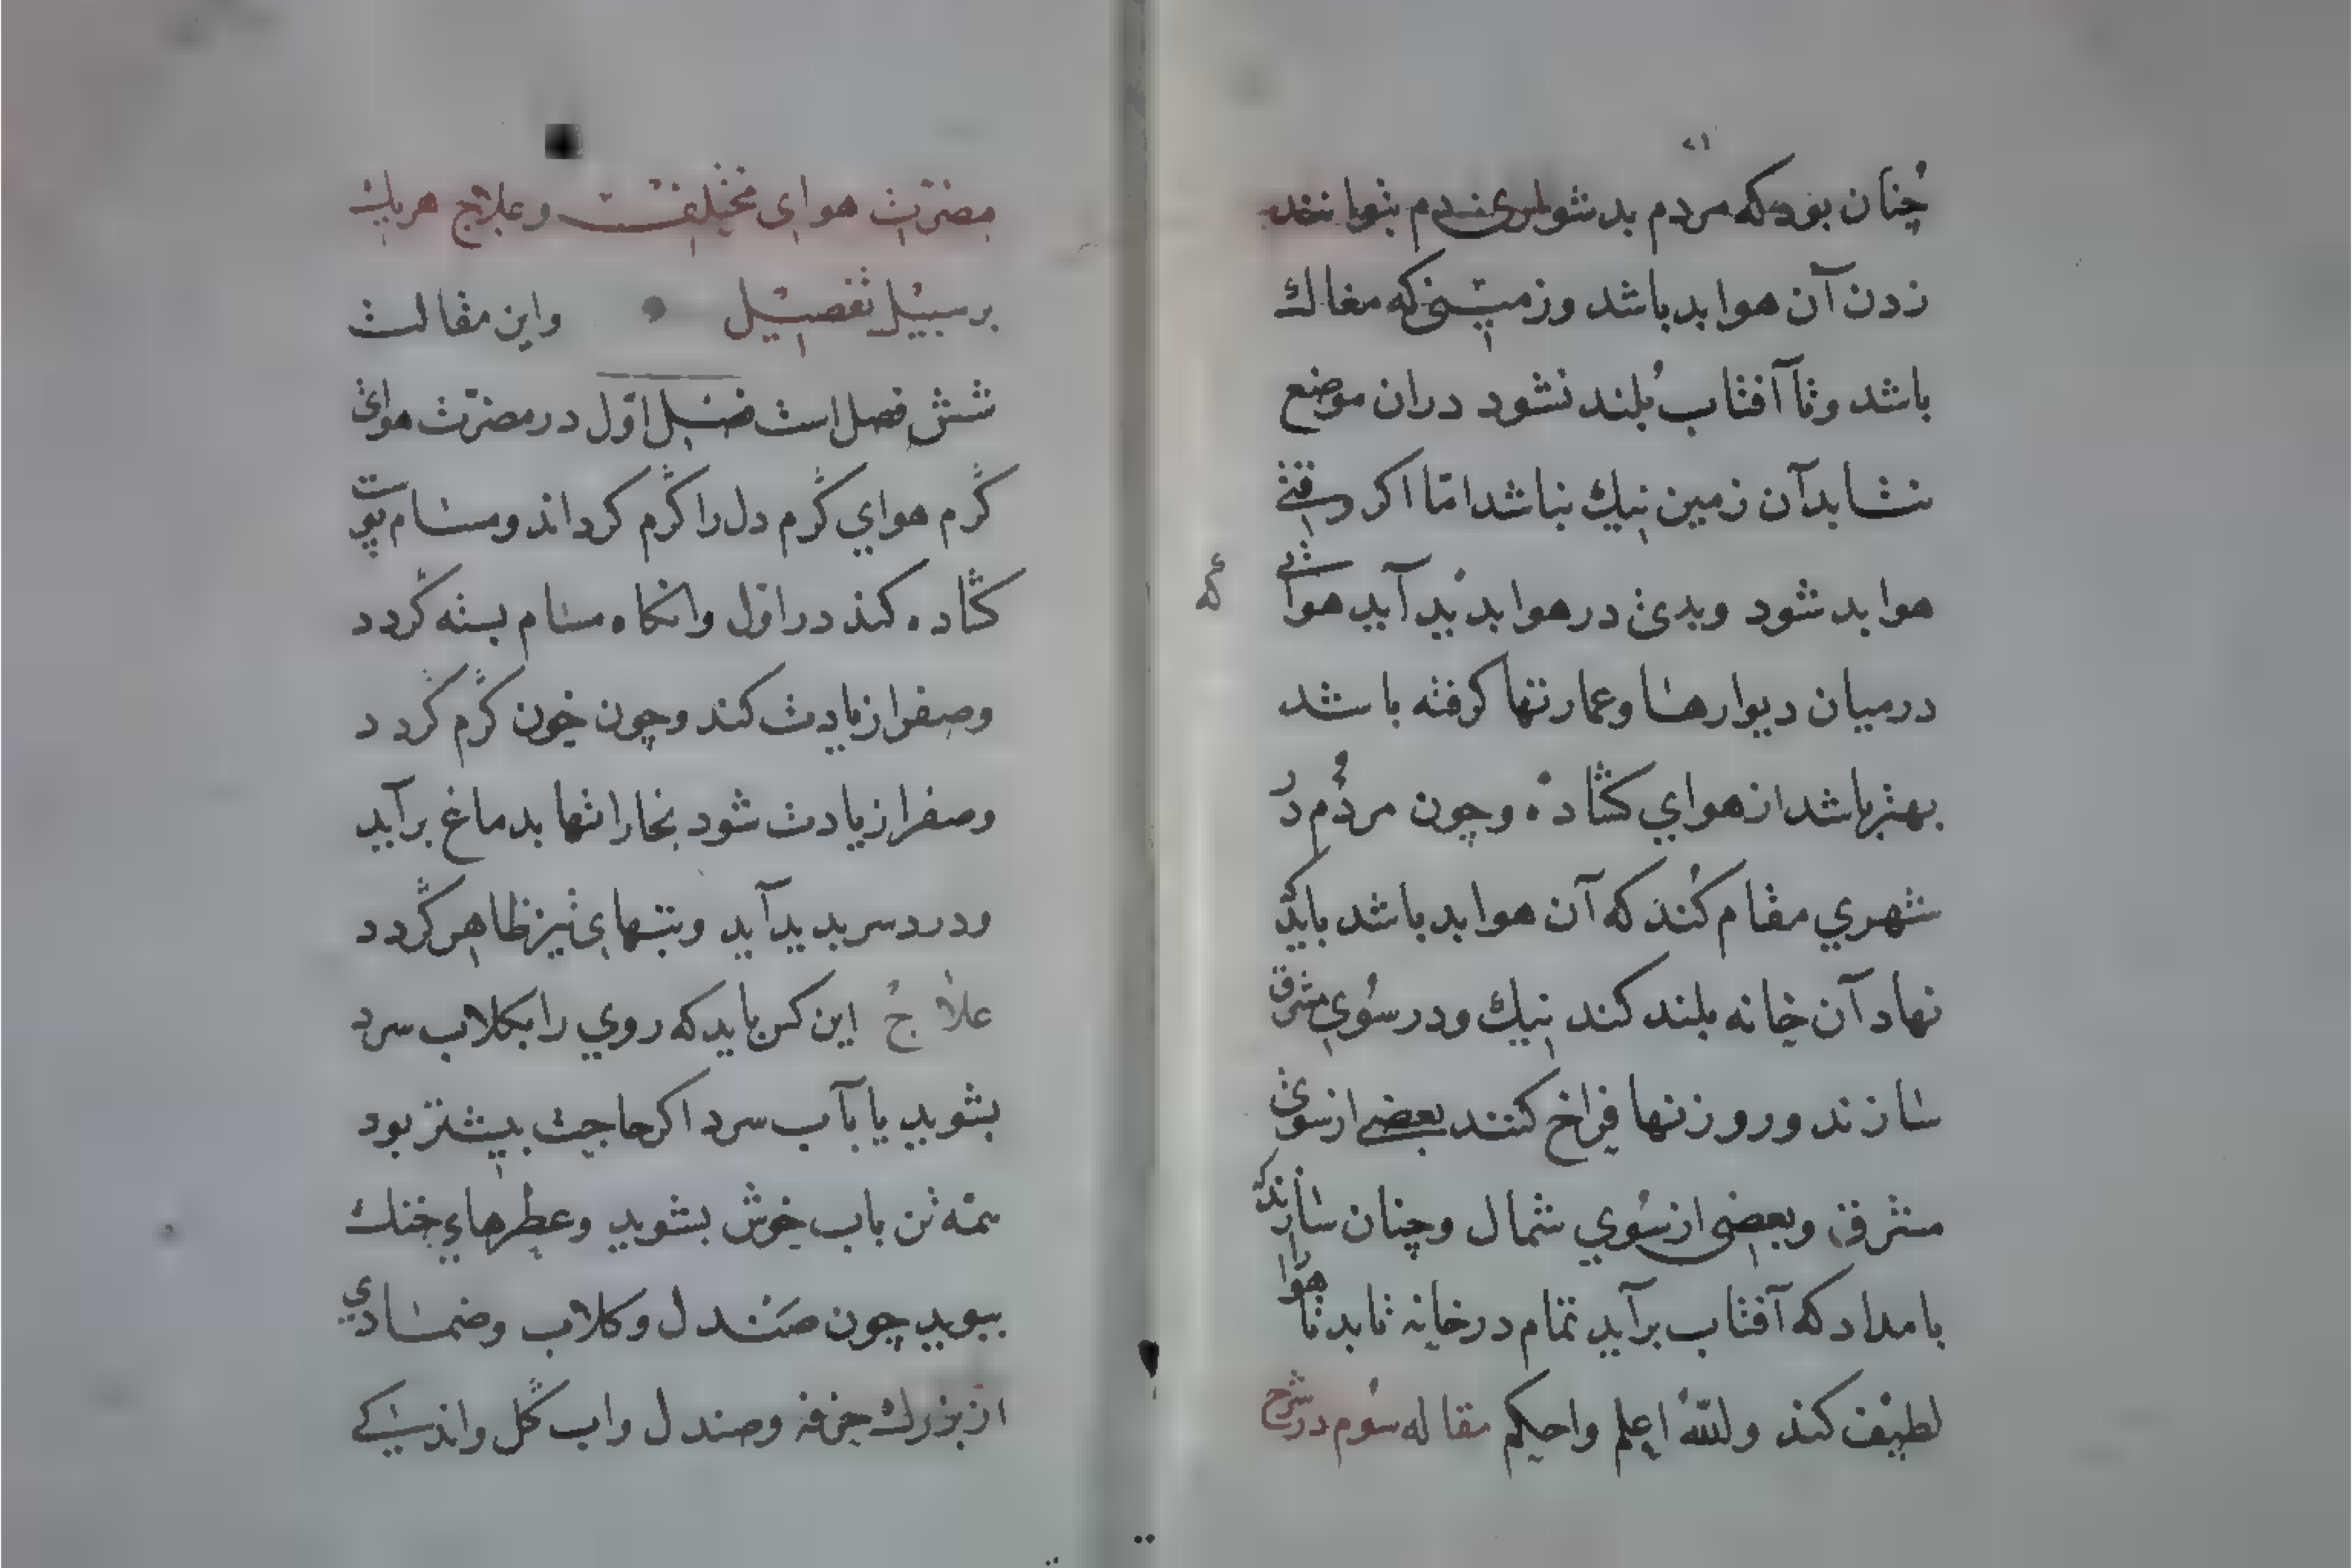 ۲۱
چنان بود که مردم بدشواری دم بتوانند
زدن آن هوا بد باشد و زمینی که مغاک
باشد و تا آفتاب بلند نشود دران موضع
نتابد آن زمین نیک نباشد اما اکر وقتی
هوا بد شود وبدی در هوا بدید آید هوائی
که
درمیان دیوارها وعمارتها کرفته باشد
بهتر باشد از هوای کشاده وچون مردم در
شهری مقام کند که آن هوا بد باشد باید که
نهاد آن خانه بلند کند نیک ودر سوی مشرق
سازند وروزنها فراخ کنند بعضی از سوی
مشرق وبعضی از سوی شمال وچنان سازند که
بامداد که آفتاب برآید تمام در خانه تابد تا هوا را
لطیف کند والله اعلم واحکم مقاله سوم در شرح
مضرت هوای مختلف وعلاج هریک
بر سبیل تفصیل واین مقالت
شش فصل است فصل اول در مضرت هوای
کرم هوای کرم دل را کرم کرداند ومسام پوست
کشاده کند در اول وانکاه مسام بسته کردد
وصفرا زیادت کند وچون خون کرم کردد
وصفرا زیادت شود بخارانتها بدماغ برآید
ودرد سر بدید آید وتبهای تیز ظاهر کردد
علاج این کس باید که روی را بکلاب سرد
بشوید یا بآب سرد اکر حاجت بیشتر بود
همه تن باب خوش بشوید وعطرهای خنک
ببوید چون صندل وکلاب وضمادی
از بزرک خرفه وصندل واب کل واندکی